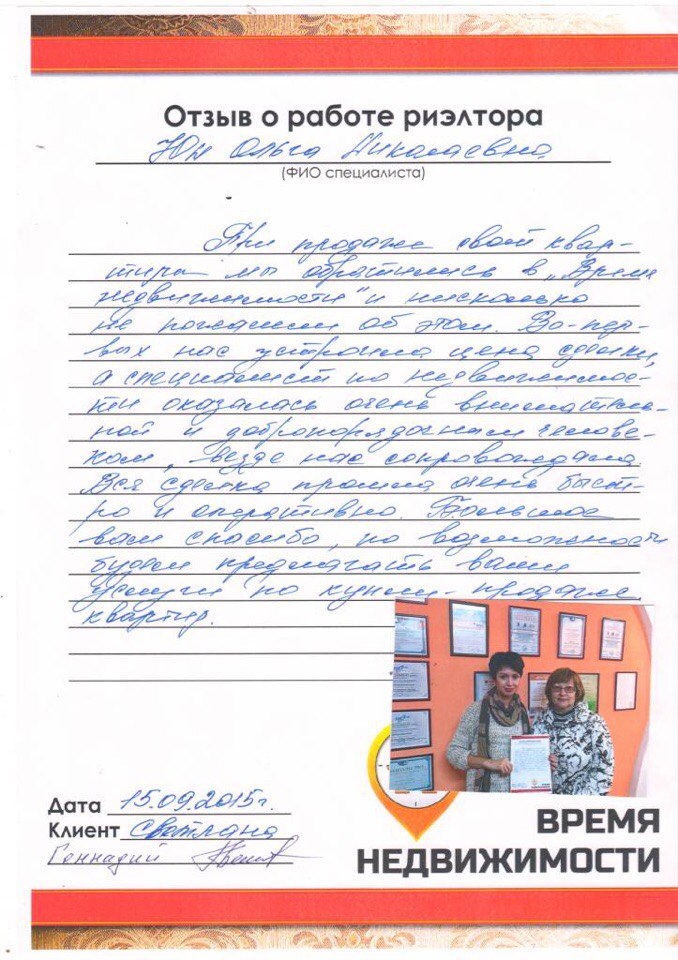 Отзыв о работе риэлтора
Юн Ольга Николаевна
(ФИО специалиста)
При продаже своей квар-
тиры мы обратились в „Время
недвижимости" и нисколько
не пожалели об этом. Во-пер-
вых нас устроила цена сделки,
а специалист по недвижимос-
ти оказалась очень вниматель-
ной и добропорядочным челове-
ком, везде нас сопровождала.
Вся сделка прошла очень быст-
ро и оперативно. Большое
вам спасибо, по возможности
будем предлагать ваши
услуги по купли-продаже
квартир.
Дата 15.09.2015г.
Клиент Светлана
Геннадий
ВРЕМЯ
НЕДВИЖИМОСТИ